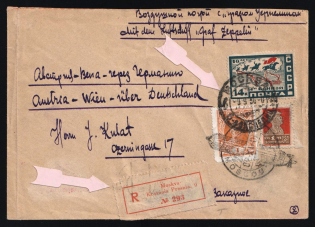 Воздушной почтой с „Графом Цеппелином"
mit dem Luftschiff „Graf Zeppelin"
Австрия-Вена-через Германию
Austria-Wien-über Deutschland
Herrn J. Kulat
Czerningasse 17
R
Moskva
№ 293
Заказное
14
ПОЧТА
СССР
МОСКВА